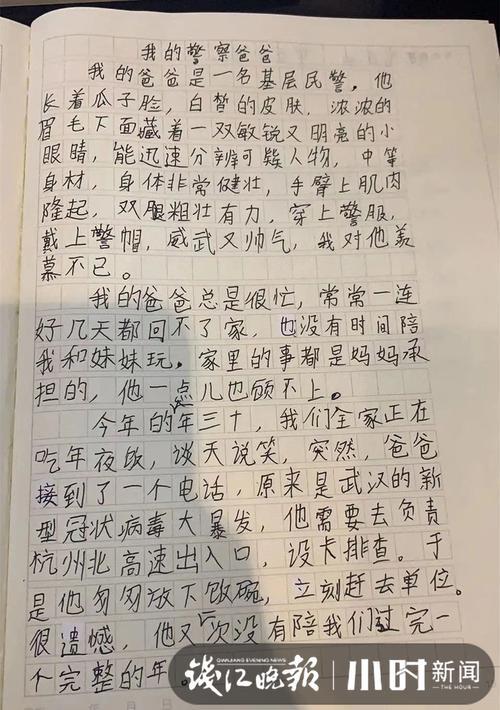 我的警察爸爸
我的爸爸是一名基层民警，他
长着瓜子脸，白皙的皮肤，浓浓的
眉毛下面藏着一双敏锐又明亮的小
眼睛，能迅速分辨可疑人物，中等
身材，身体非常健壮，手臂上肌肉
隆起，双腿粗壮有力，穿上警服，
戴上警帽，威武又帅气，我对他羡
慕不已。
我的爸爸总是很忙，常常一连
好几天都回不了家，也没有时间陪
我和妹妹玩。家里的事都是妈妈承
担的，他一点儿也顾不上。
今年的年三十，我们全家正在
吃年夜饭，谈天说笑，突然，爸爸
接到了一个电话，原来是武汉的新
型冠状病毒大暴发，他需要去负责
杭州北高速出入口，设卡排查。于
是他匆匆放下饭碗，立刻赶去单位。
很遗憾，他又一次没有陪我们过完一
个完整的年。
钱江晚报
QIANJIANG EVENING NEWS
小时新闻
THE HOUR